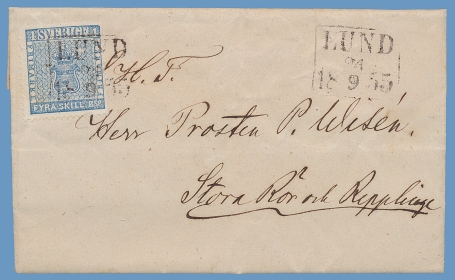 SVERIGE
FYRA SKILL. BCO
LUND
LUND
24
18 9 55
H. F.
Herr Prosten P. Wisén.
Stora Rör och Repplinge